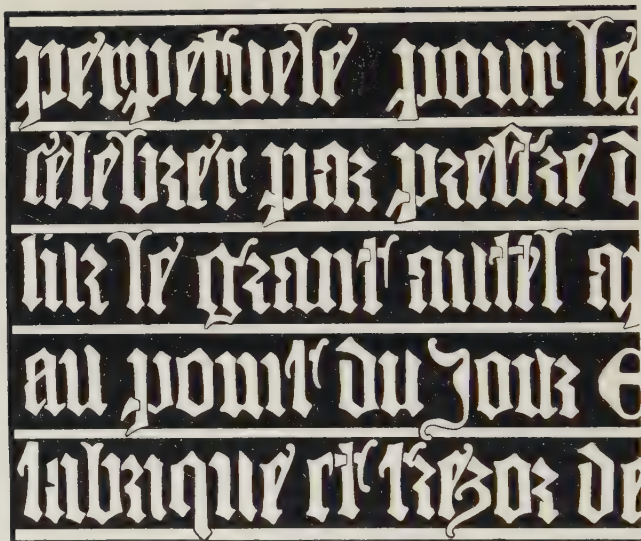 perpetuele pour le
celebrer par prestre d
sur le grant autel a
au point du Jour E
fabrique et trezor de